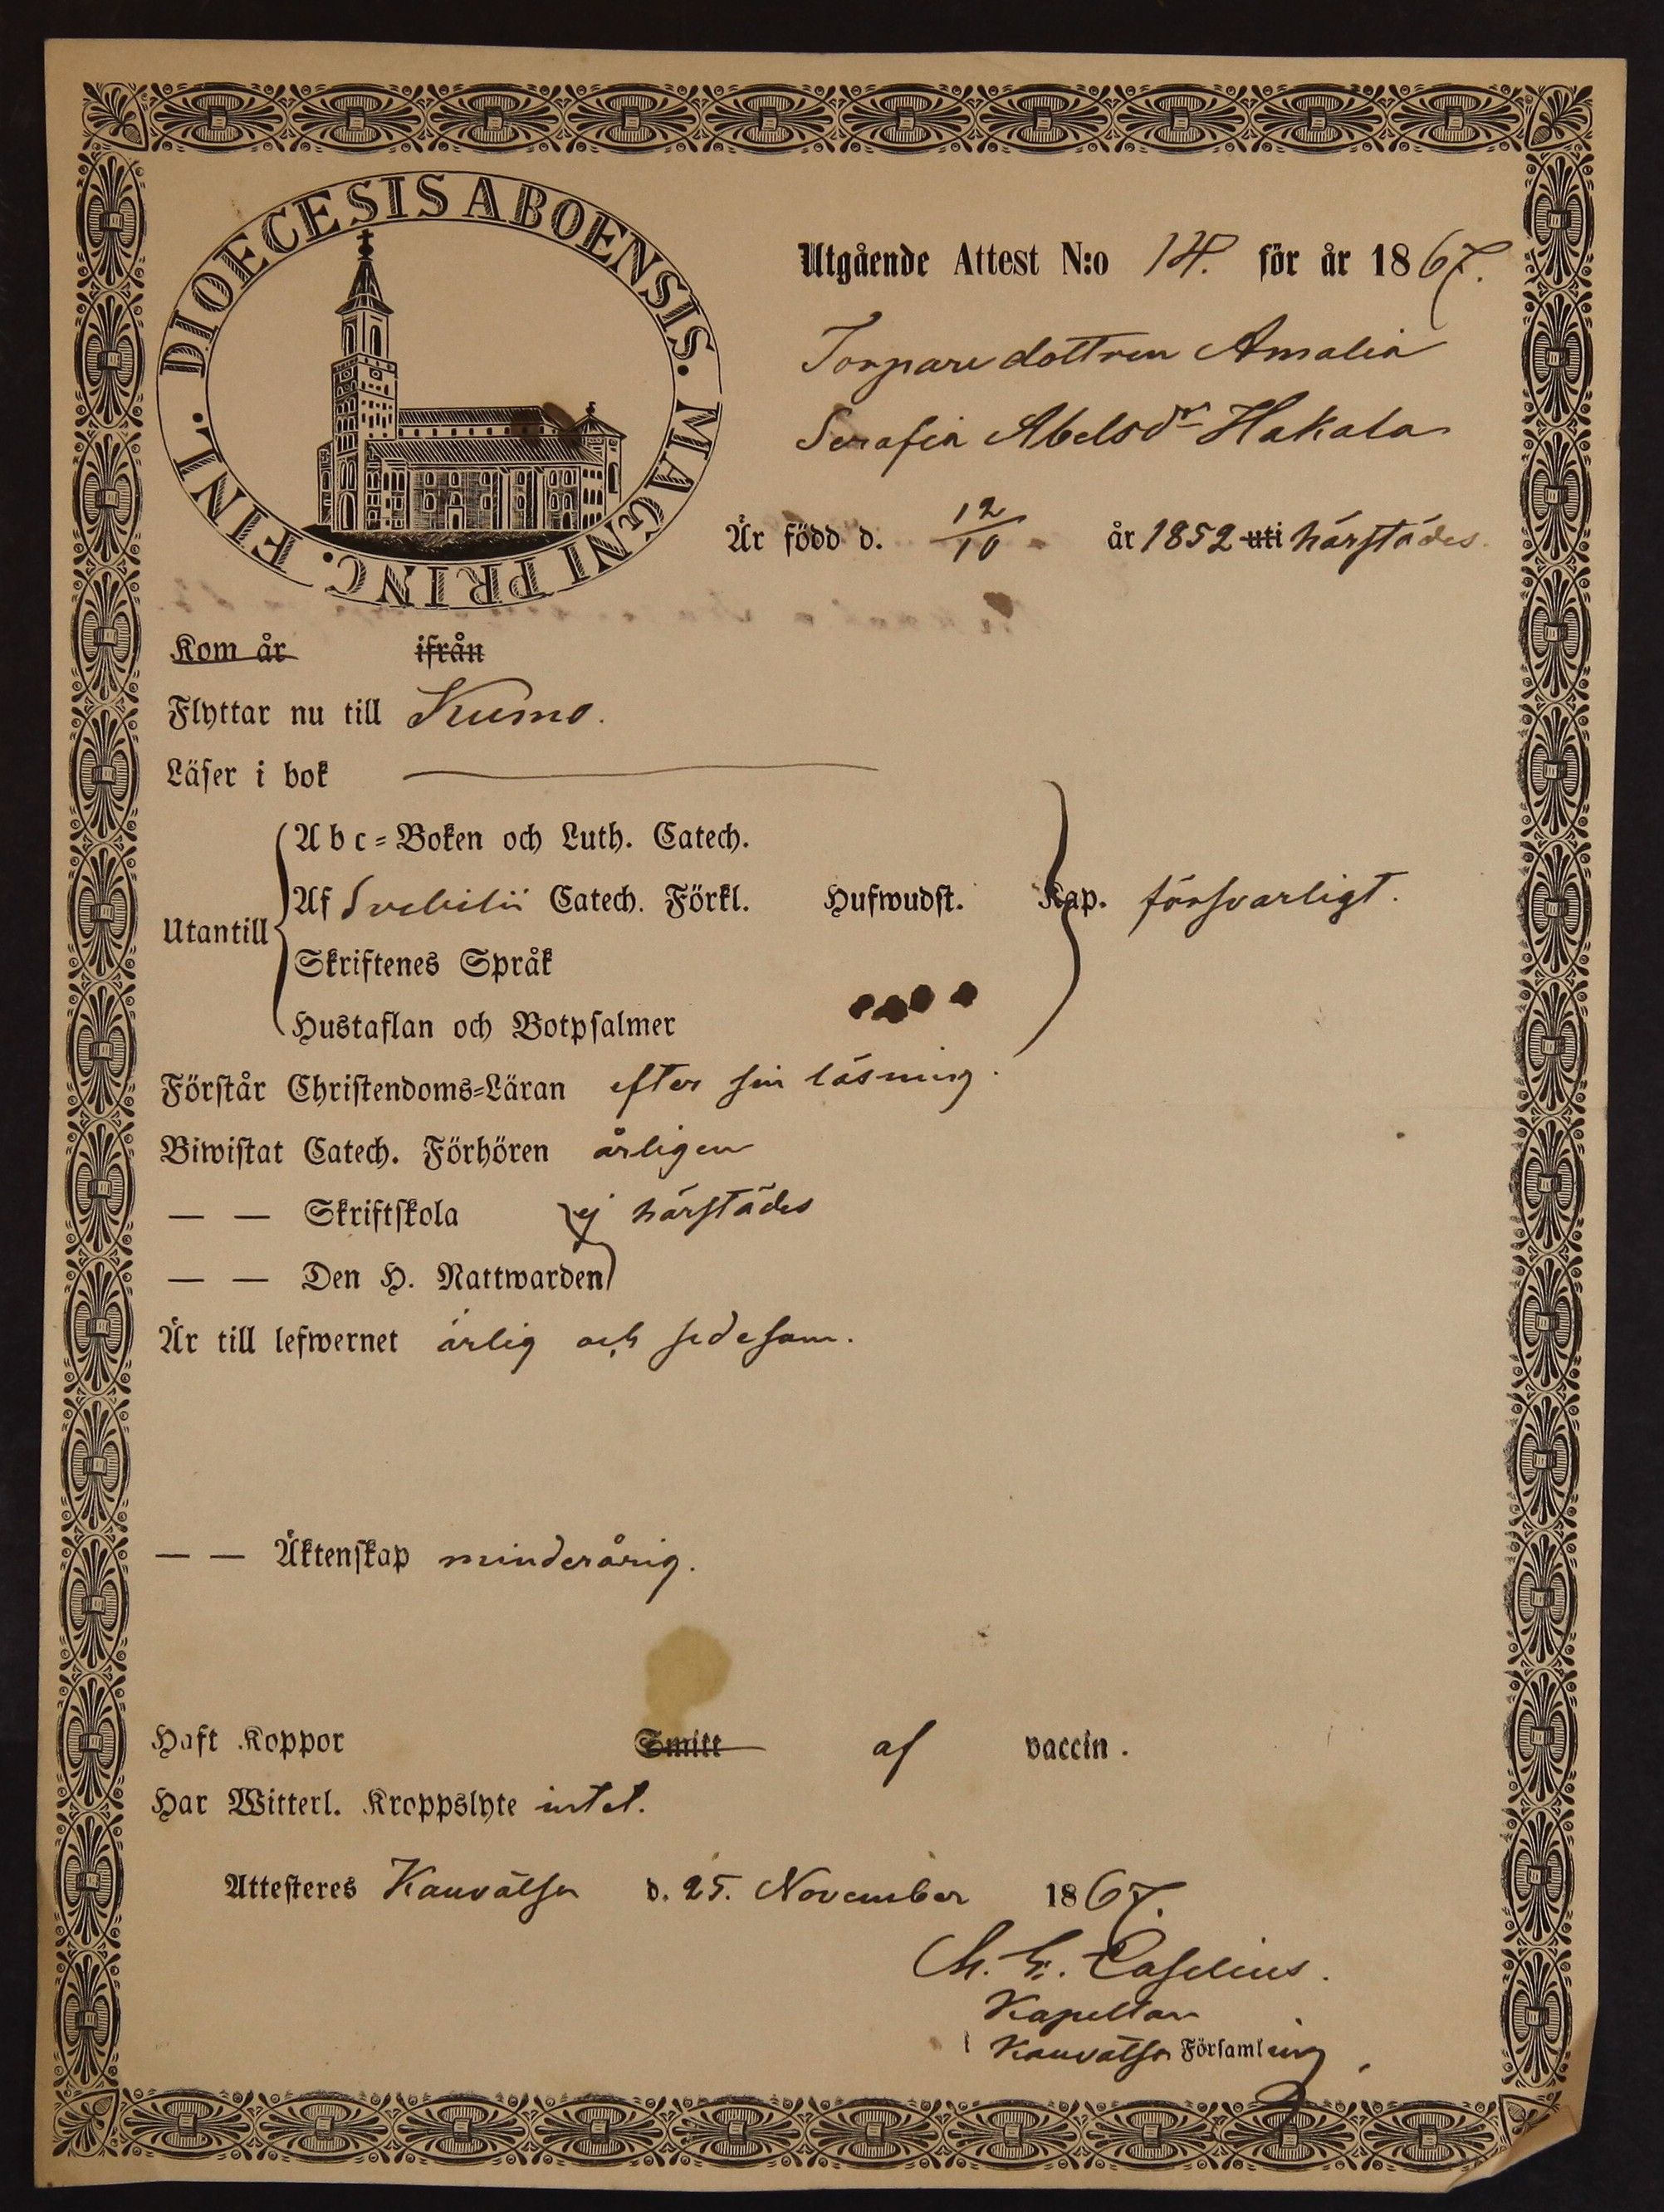 DIOECESIS ABOENSIS. MAGNI PRINC. FINL.
Utgående Attest N:o 14. för år 1867.
Torparedottren Amalia
Serafia Abelsdr Hakala
Är född d. 12/10 år 1852 uti härstädes.
Kom år ifrån
Flyttar nu till Kumo.
Läser i bok
Utantill
Abc-Boken och Luth. Catech.
Af Svebilii Catech. Förkl. Hufwudst. Kap. försvarligt.
Skriftenes Språk
Hustaflan och Botpsalmer
Förstår Christendoms-Läran efter sin läsning.
Biwistat Catech. Förhören årligen
— — Skriftskola ej härstädes
— — Den H. Nattwarden
Är till lefwernet ärlig och sedesam.
— — Äktenskap minderårig.
Haft Koppor Smitt af vaccin.
Har Witterl. Kroppslyte intet.
Attesteres Kauvatsa d. 25. November 1867.
Caselius.
Kapellan
Kauvatsa Församling